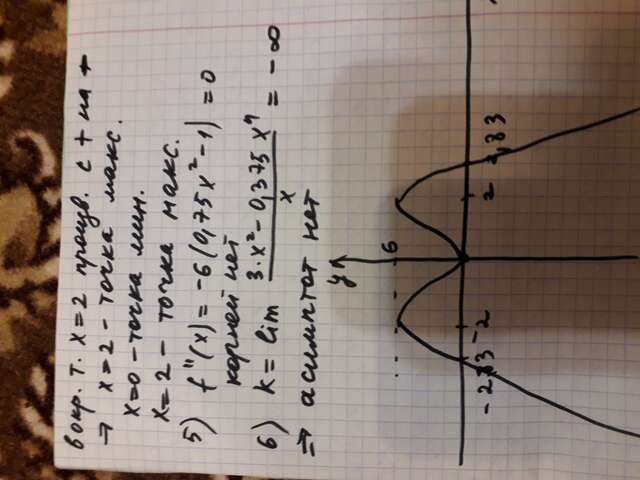 в окр. т. x=2 произв. с + на +
⇒ x=2 - точка макс.
x=0 - точка мин.
x=2 - точка макс.
5) f"(x) = -6(0,75x²-1) = 0
корней нет
6) k = lim (3·x² - 0,375x⁴)/x = -∞
⇒ асимптот нет
y
6
-2,83 -2 2 2,83